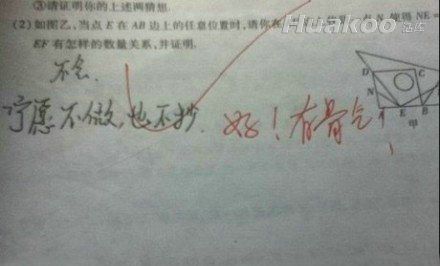 ③请证明你的上述两猜想.
(2)如图乙,当点 E 在 AB 边上的任意位置时,请你在
使得 NE
EF 有怎样的数量关系,并证明.
不会.
宁愿不做,也不抄. 好!有骨气!
D
N
A E B
甲
Huakoo 话库